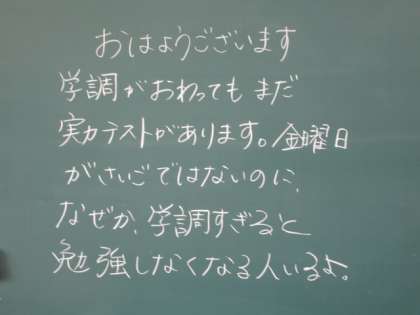 おはようございます
学調がおわっても まだ
実力テストがあります。金曜日
がさいごではないのに、
なぜか、学調すぎると
勉強しなくなる人いるよ。